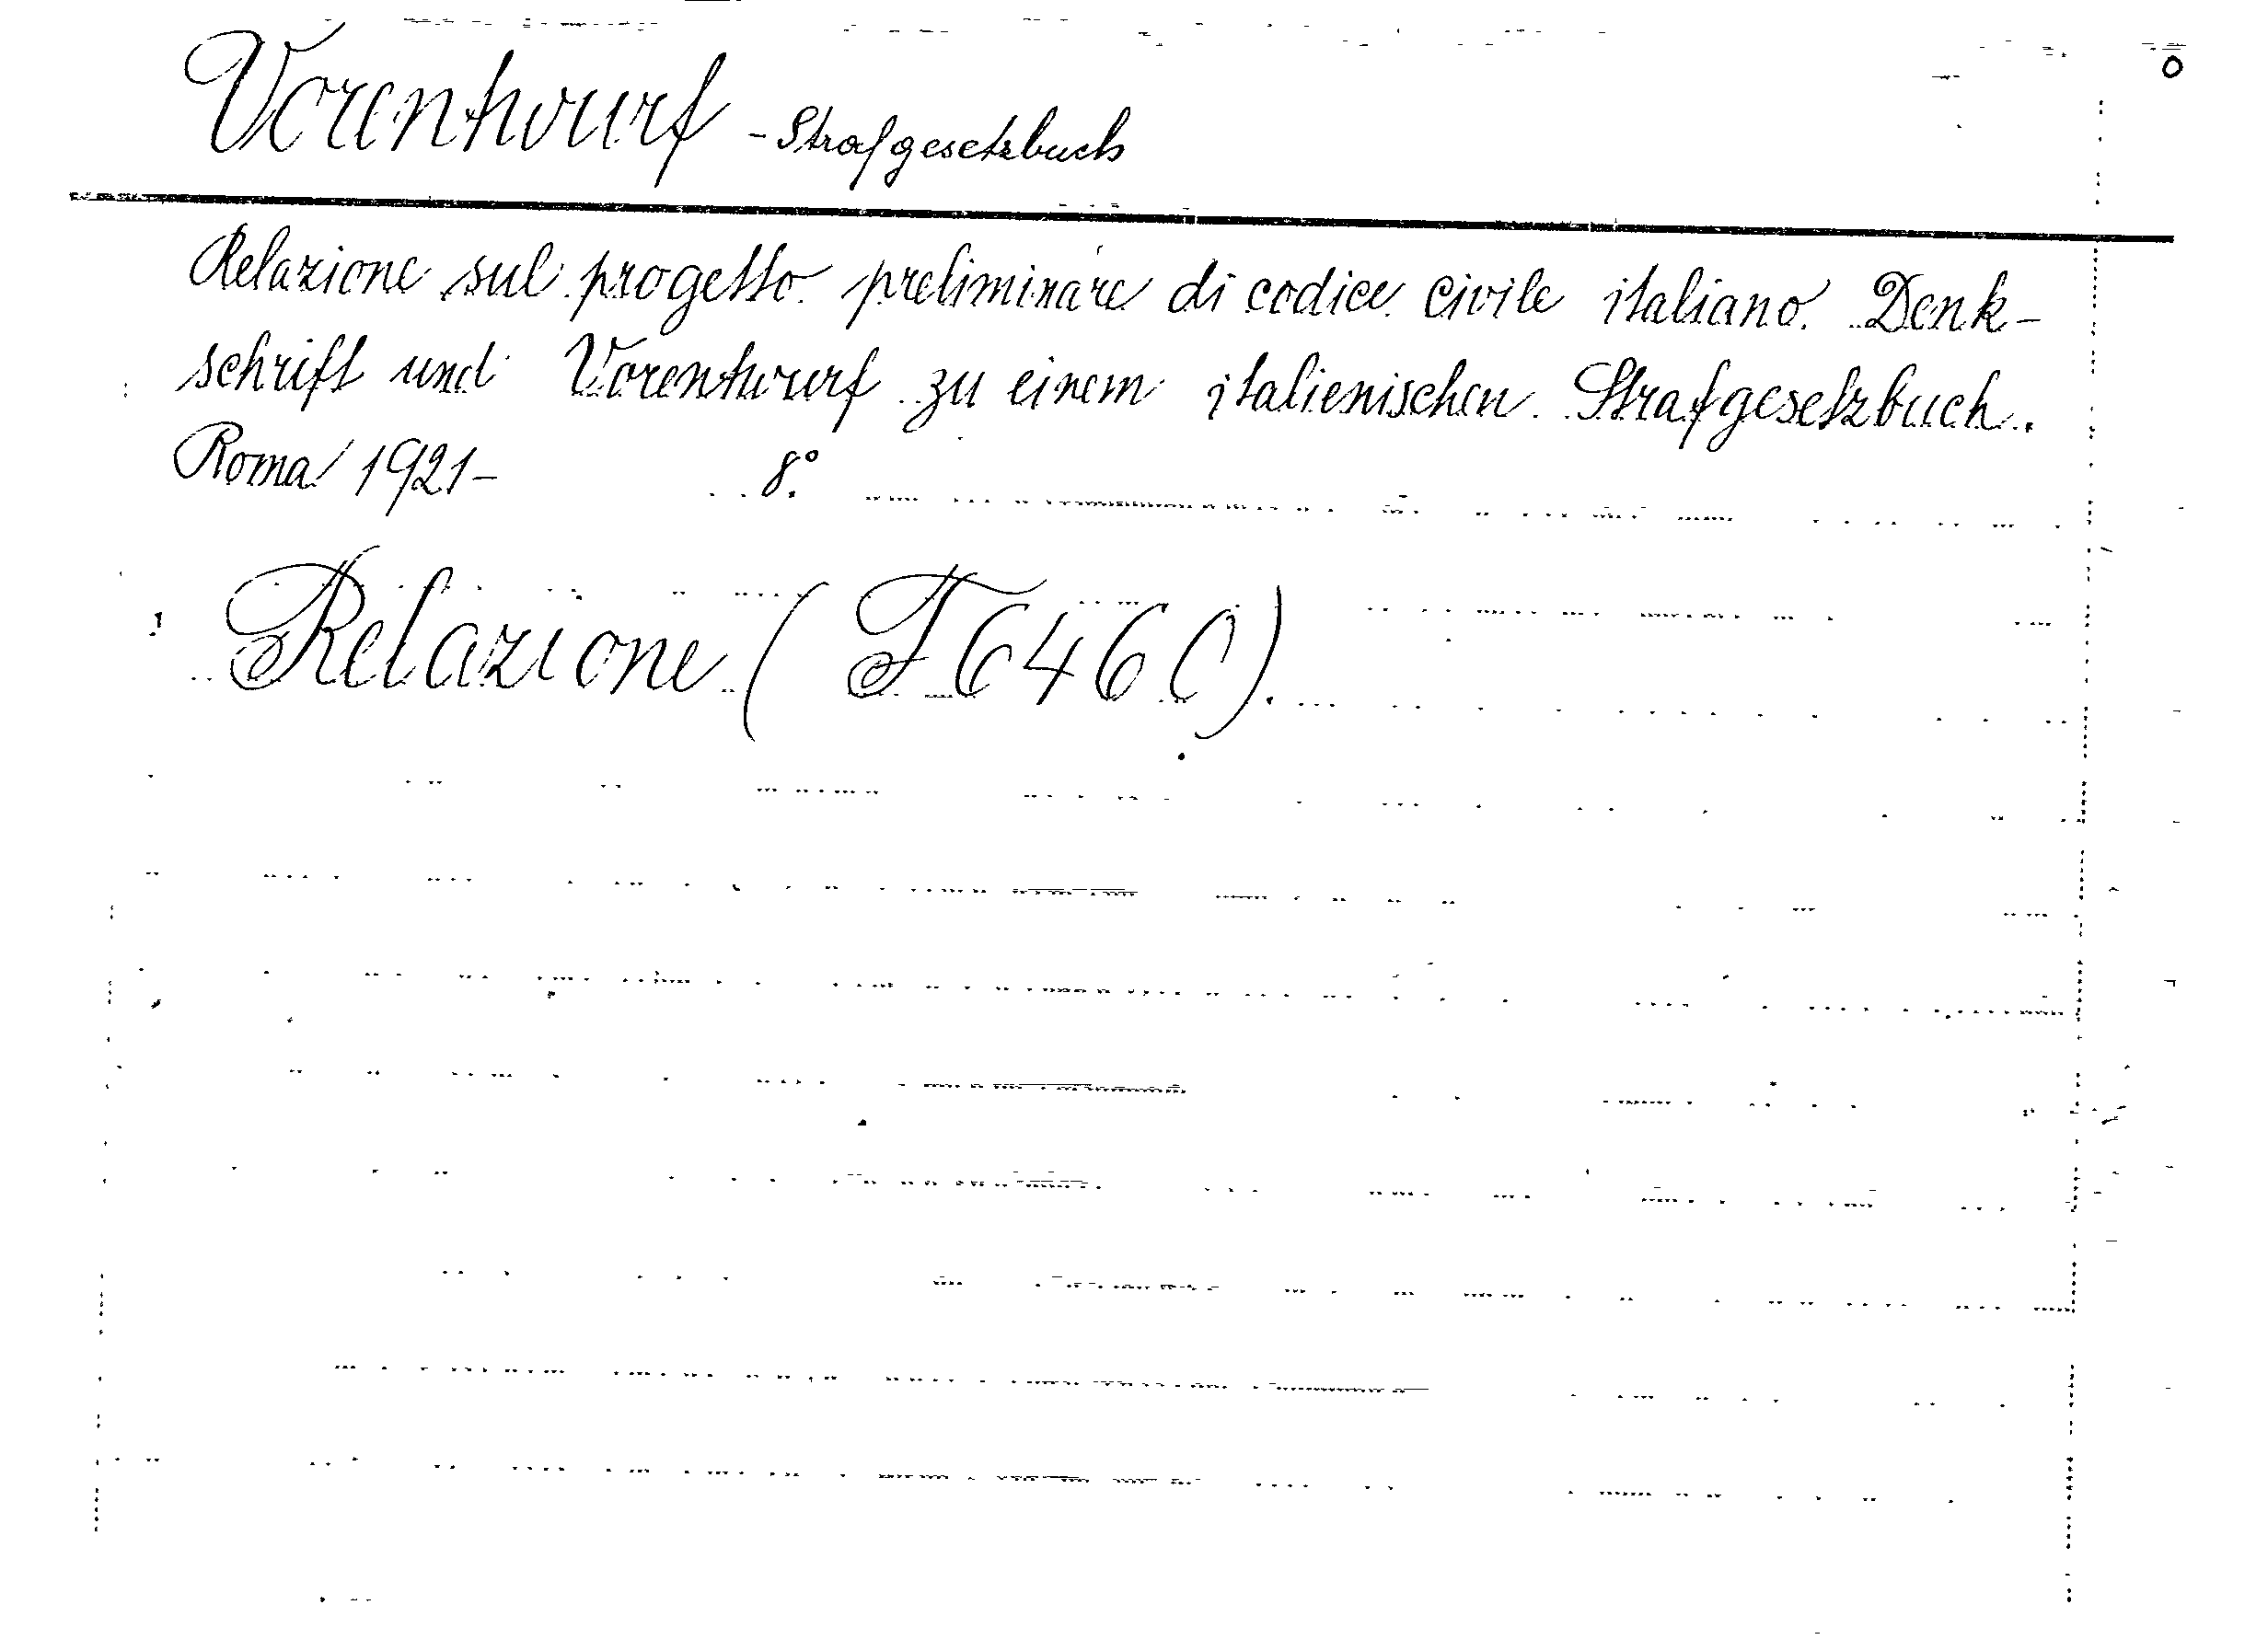 Vorentwurf - Strafgesetzbuch
Relazione sul progetto preliminare di codice civile italiano. Denk-
schrift und Vorentwurf zu einem italienischen Strafgesetzbuch.
Roma 1921- 8°.
Relazione (F 646 C).